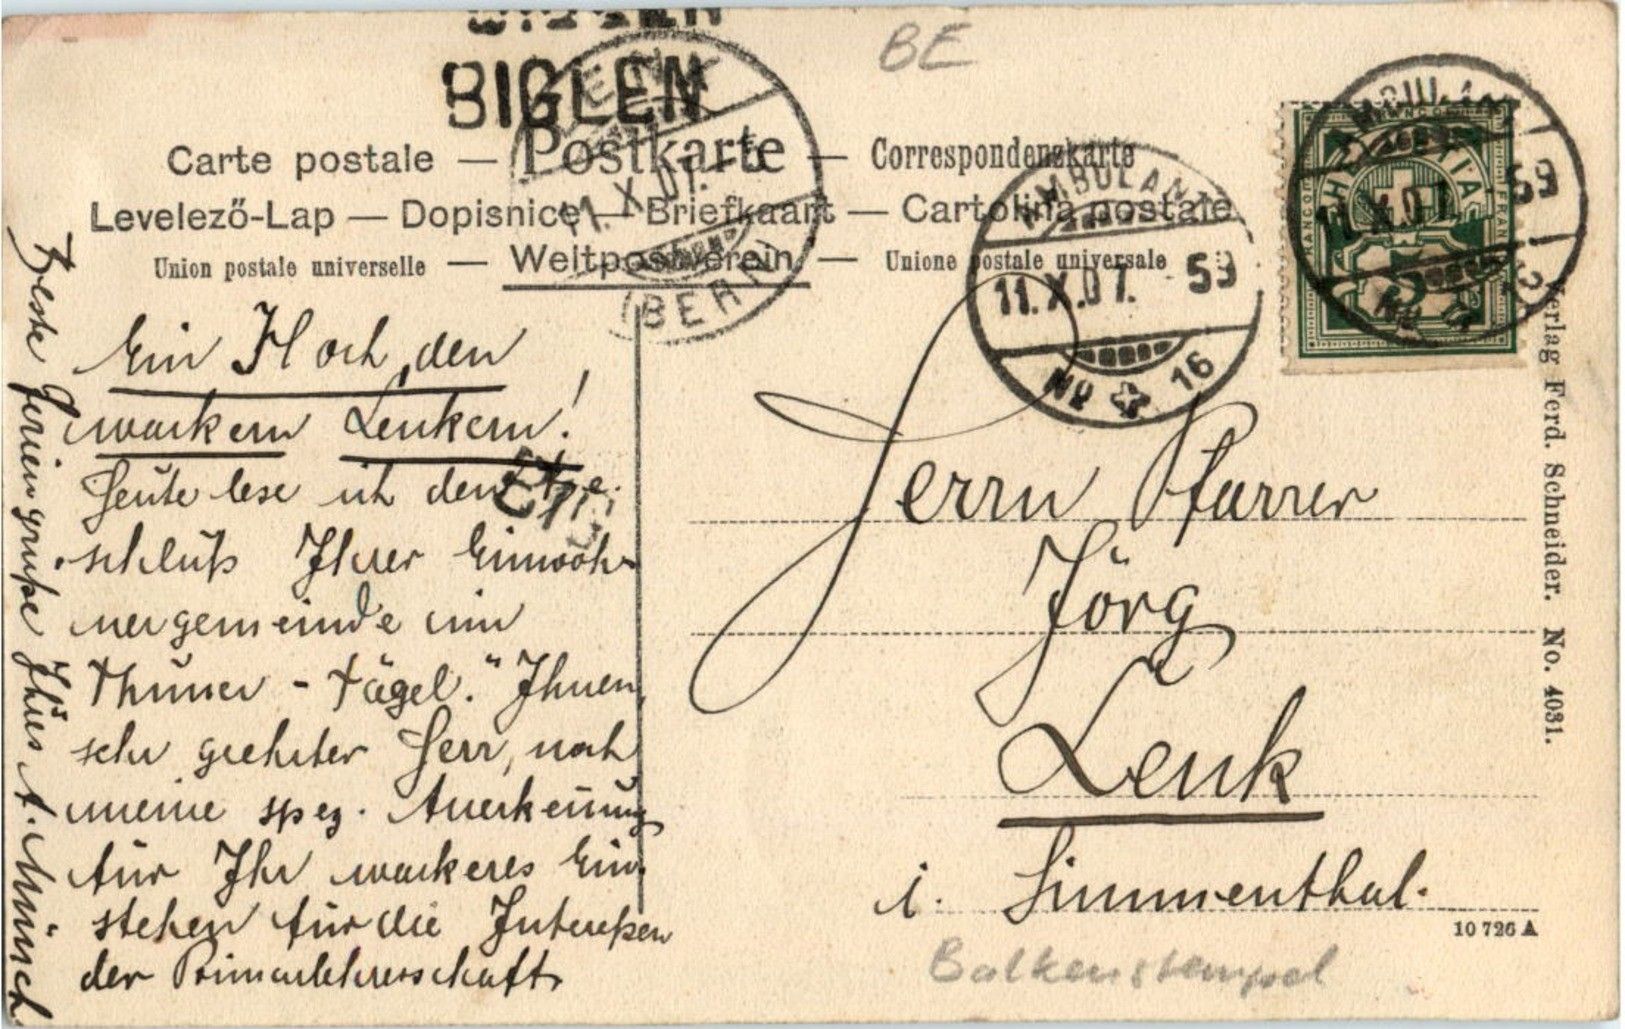 BIGLEN
BIGLEN
BE
Carte postale — Postkarte — Correspondenzkarte
Levelező-Lap — Dopisnice — Briefkaart — Cartolina postale
Union postale universelle — Weltpostverein — Unione postale universale
11.X.07.
(BERN)
AMBULANT
11.X.07. 59
No 16
HELVETIA
FRANCO
FRANCO
5
AMBULANT
11.X.07. 59
No
Ein Hoch den
wackern Lenkern!
Heute lese ich den
schluß Ihrer Einwoh-
nergemeinde im
Thuner-Tägbl." Ihnen,
sehr geehrter Herr, noch
meine spez. Anerkennung
für Ihr wackeres Ein-
stehen für die Interessen
der Primarlehrerschaft.
Beste Feriengrüße Ihres A. Münch
Herrn Pfarrer
Jörg
Lenk
i. Simmenthal.
Verlag Ferd. Schneider. No. 4031.
10 726 A
Balkenstempel